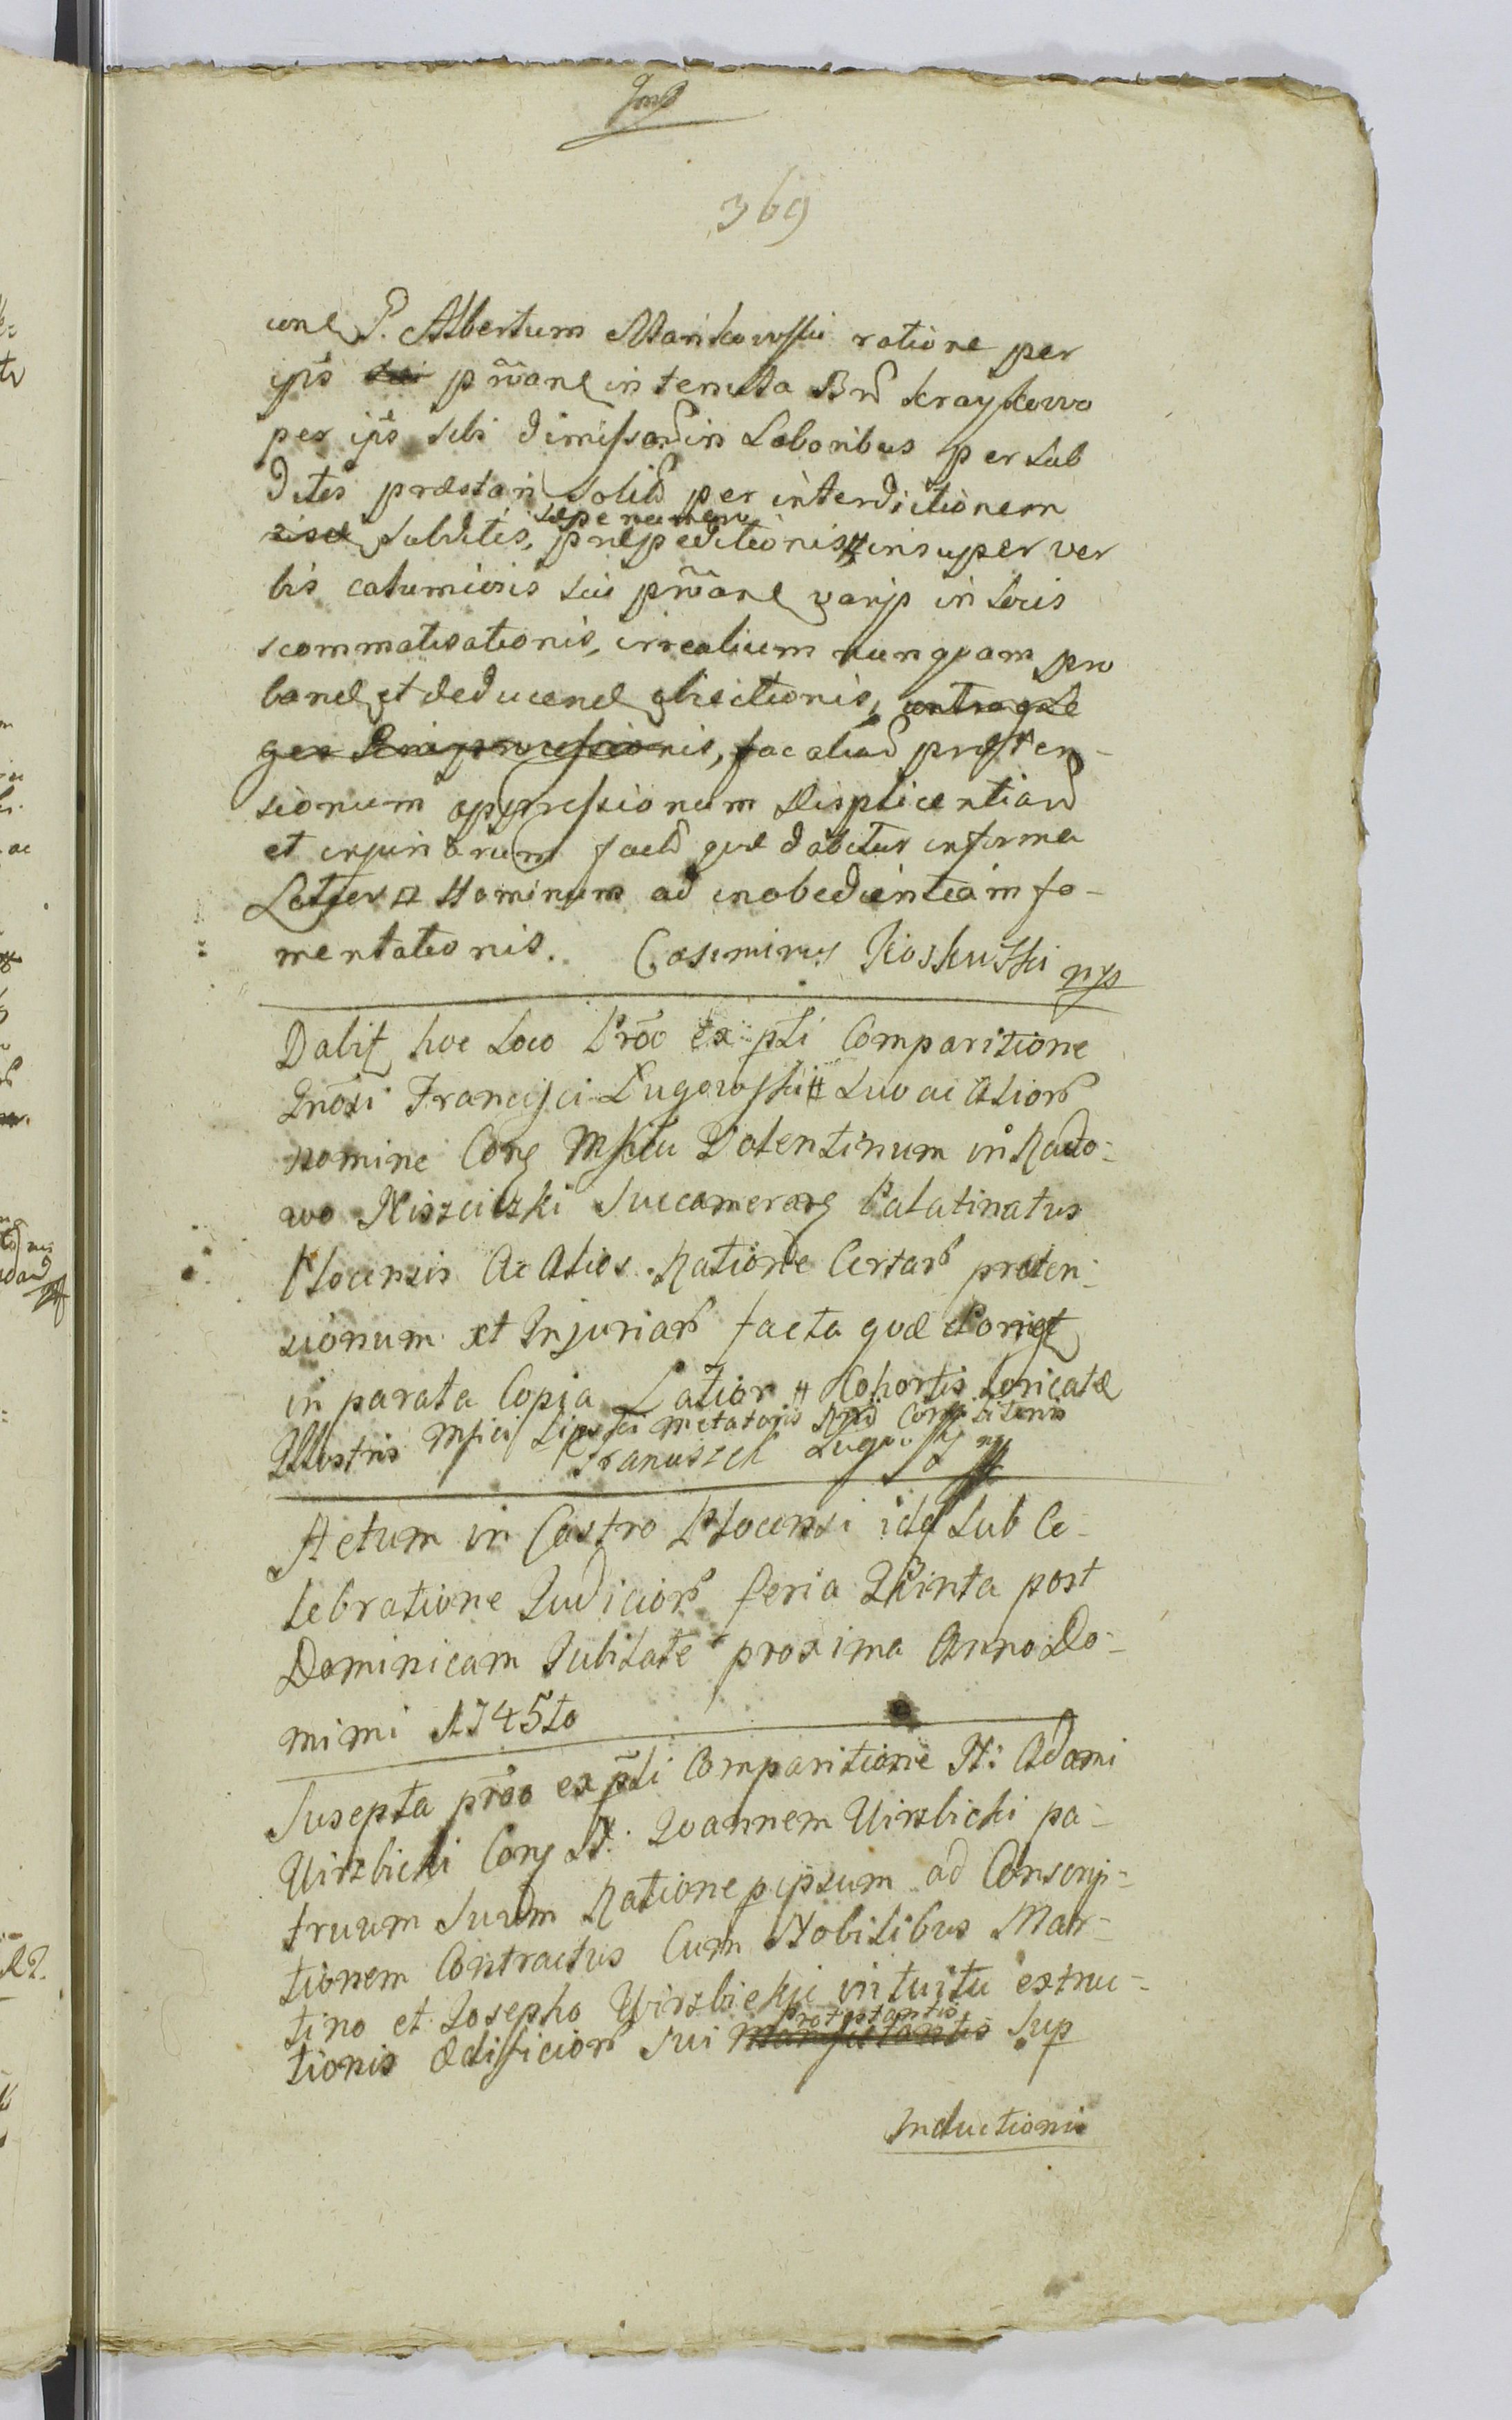 369
cone P. Albertum Mankowski ratione per
ips prōane in tenuta Brd Kraykowo
per ips sibi dimissard in Laboribus per sub
ditos præstari solitd per interdictionem
subditis, sæpenumero præpeditionis # insuper ver
bis calumiosis sui prōane varys in Locis
scommatisationis, irrealium nunquam pro
bane et deducene obiectionis, contra Le
ges, ac aliard præten-
sionum oppressionum displicentiard
et injuriarum facta quæ dabitur in forma
Latiori Hominum ad inobedientiam fo-
mentationis. Casimirus Kioskuski mp
Dabit hoc Loco Prōo ex pti Comparitione
Gnōsi Francisci Lugowski # Suo ac Aliorr
nomine Cong Mficu Valentinum in Rado-
wo Niszciszki Succamerarg Palatinatus
Plocensis Ac Alios Ratione Certarr preten-
sionum et Injuriarr facta quæ Porriget
in parata Copia Latior # Cohortis Loricatæ
Illustris Mfici Lipski Metatoris Commilitonis
Franuszek Lugowsky mp
Actum in Castro Plocensi idq Sub Ce-
lebratione Judiciorr feria Quinta post
Dominicam Jubilate proxima Anno Do-
mimi 1745to
Susepta prōo ex pti Comparitione N: Adami
Wirzbicki Cong N. Joannem Wirzbicki pa-
truum Suum Ratione p ipsum ad Conscrip-
tionem Contractus Cum Nobilibus Mar-
tino et Josepho Wirzbickie intuitu extruc-
tionis ædificiorr sui protestantis Sup
Inductionis